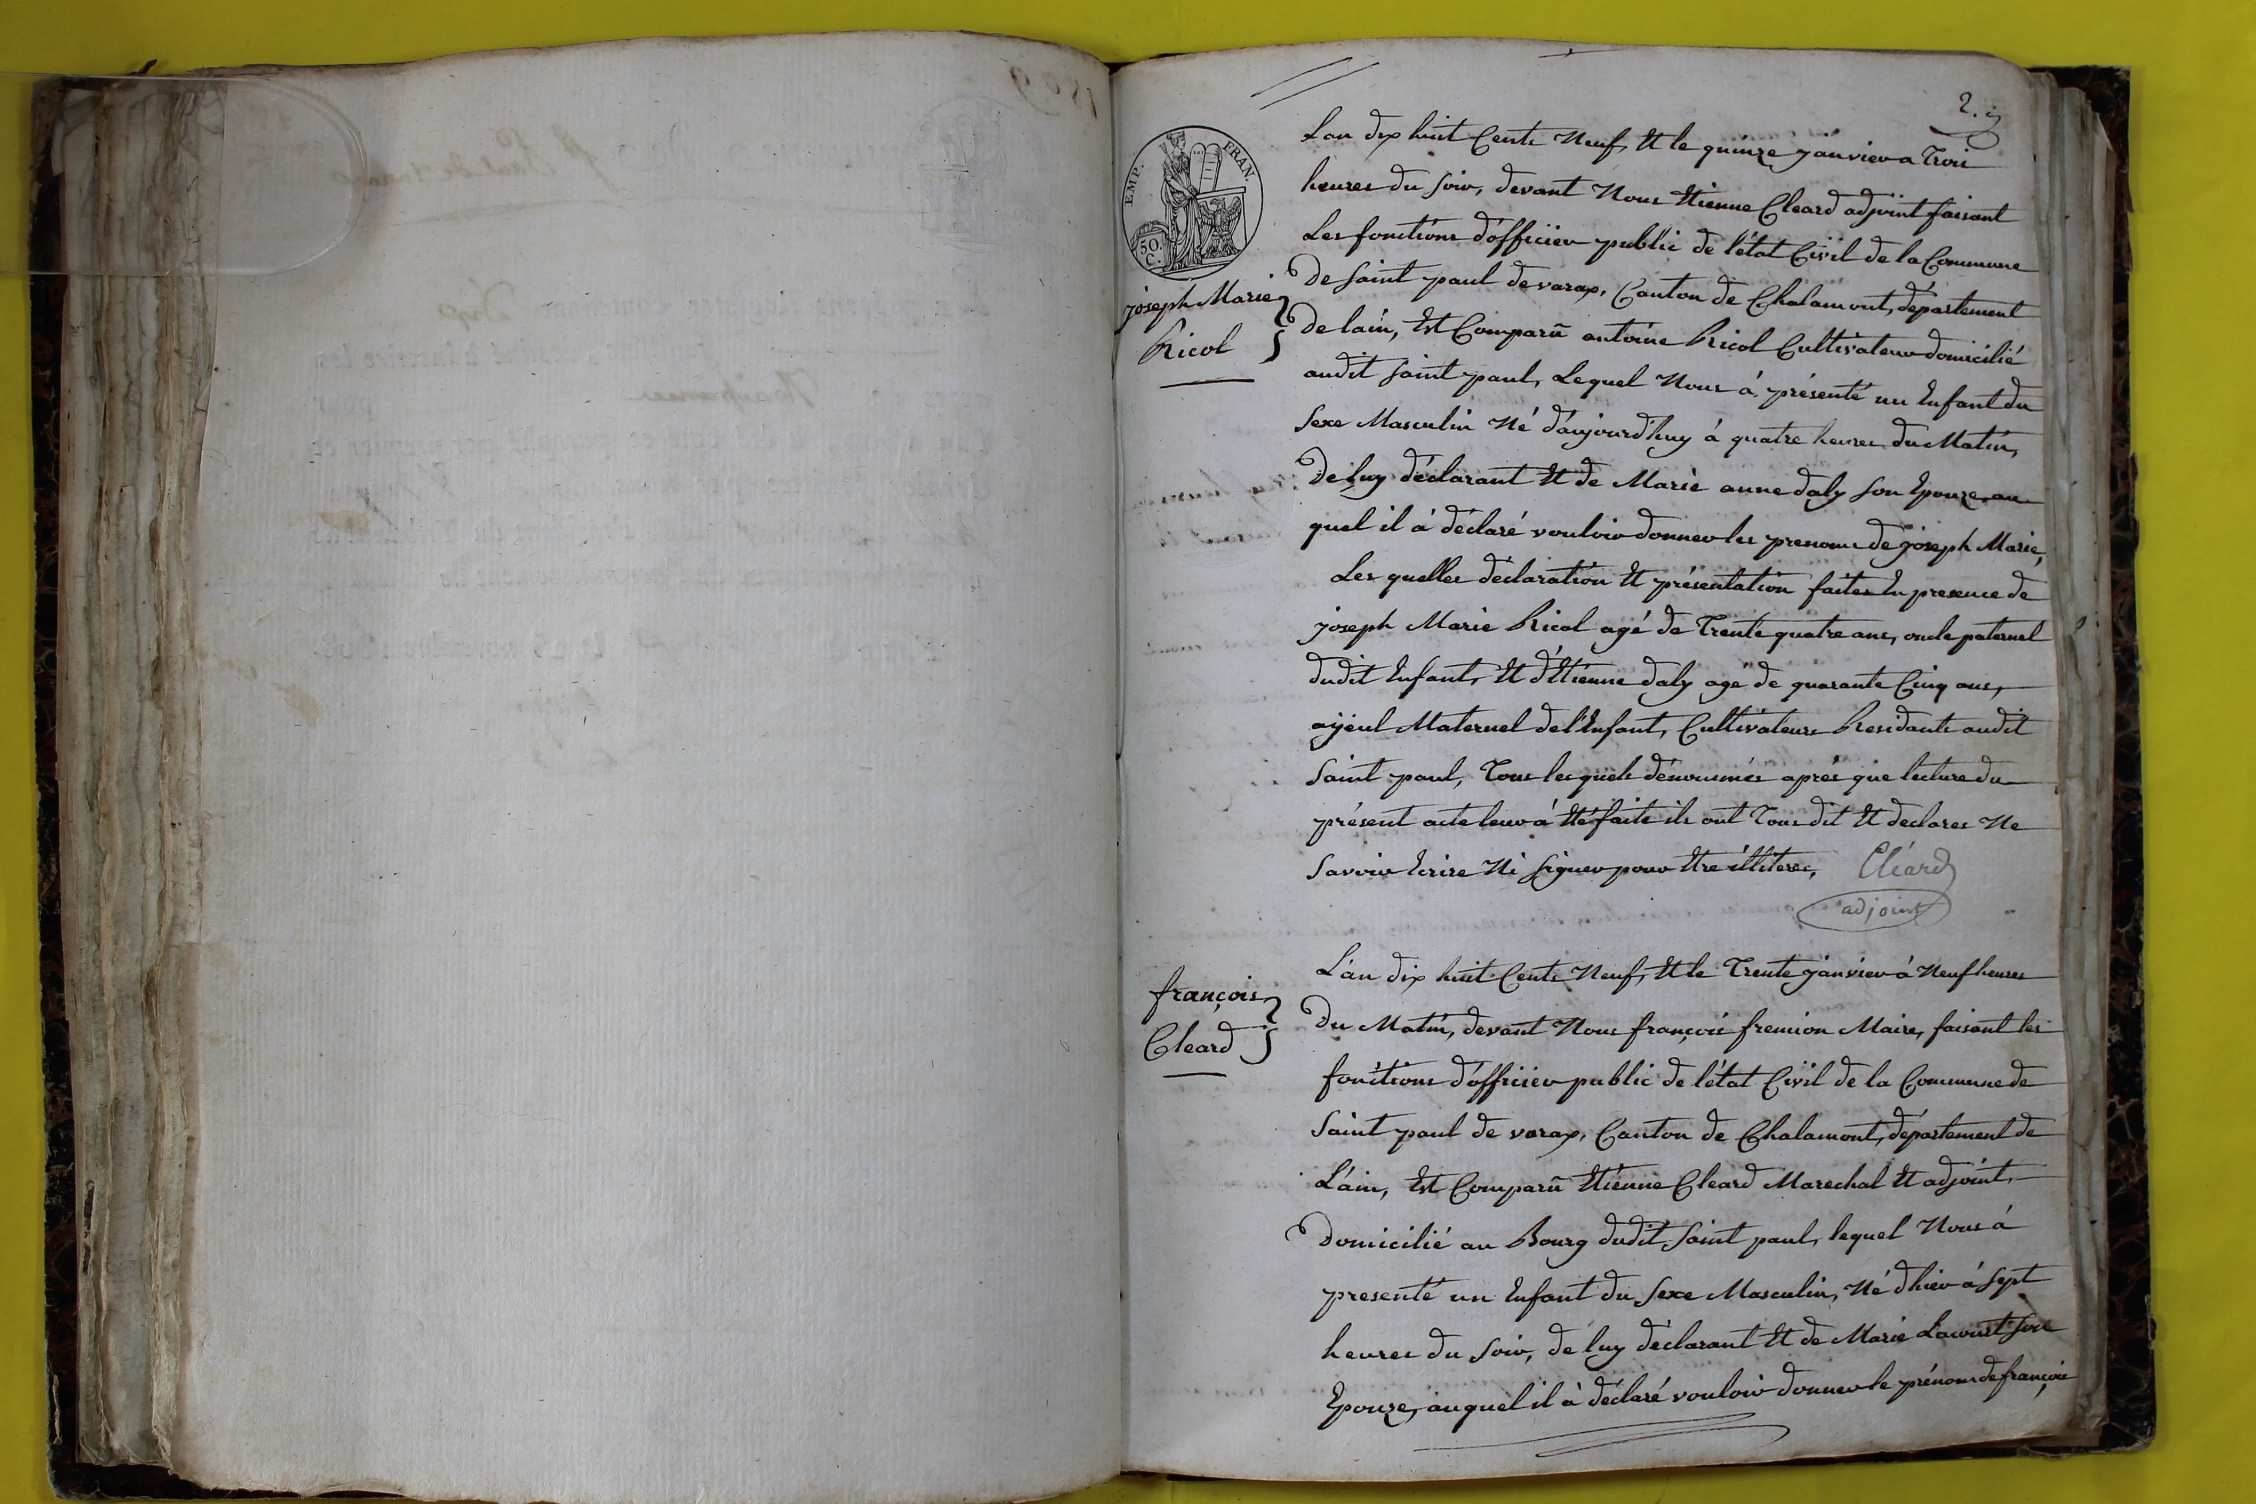 1809
2.
EMP. FRAN.
50.
C.
joseph Marie
Ricol
Lan dix huit Cents Neuf, Et le quinze janvier a Trois
heures du soir, devant Nous Etienne Cleard adjoint faisant
Les fonctions d'officier public de l'état Civil de la Commune
De saint paul de varax, Canton de Chalamont, département
De lain, Est Comparû antoine Ricol Cultivateur domicilié
audit saint paul, Lequel Nous á présenté un Enfant du
Sexe Masculin Né d'aujourd'huy á quatre heures du Matin,
De luy déclarant Et de Marie anne daly son Epouze, au
quel il á déclaré vouloir donner les prenoms de joseph Marie,
Les quelles déclaration Et présentation faites En presence de
joseph Marie Ricol agé de Trente quatre ans, oncle paternel
dudit Enfant, Et d'Etienne daly agé de quarante Cinq ans,
ayeul Maternel de l'Enfant, Cultivateurs Residants audit
saint paul, Tous lesquels dénommés aprés que lecture du
présent acte leur á Eté faite ils ont Tous dit Et declarer Ne
savoir Ecrire Ni signer pour Etre illiteres,
Cléard
adjoint
françois
Cleard
L'an dix huit Cents Neuf, Et le Trente janvier á Neuf heures
Du Matin, devant Nous françois fremion Maire, faisant les
fonctions d'officier public de l'état Civil de la Commune de
saint paul de varax, Canton de Chalamont, département de
L'ain, Est Comparû Etienne Cleard Marechal Et adjoint
Domicilié au Bourg dudit saint paul, lequel Nous á
presenté un Enfant du sexe Masculin, Né d'hier á sept
heures du soir, de luy déclarant Et de Marie son
Epouze, auquel il à déclaré vouloir donner le prénom de françois